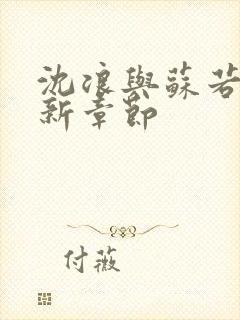 沈浪與蘇若
新章節
付薇